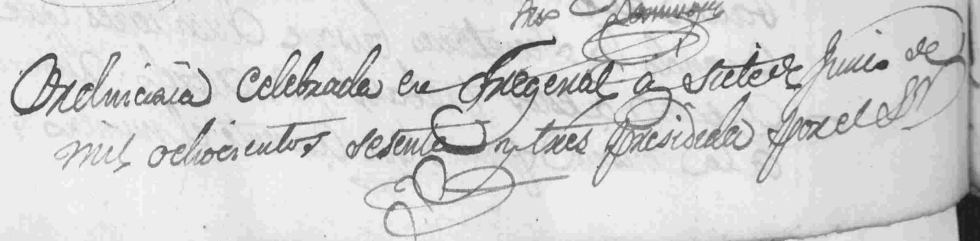 Dominguez
Ordinaria celebrada en Fregenal a siete de Junio de
mil ochocientos sesenta y tres presidida por el Sr